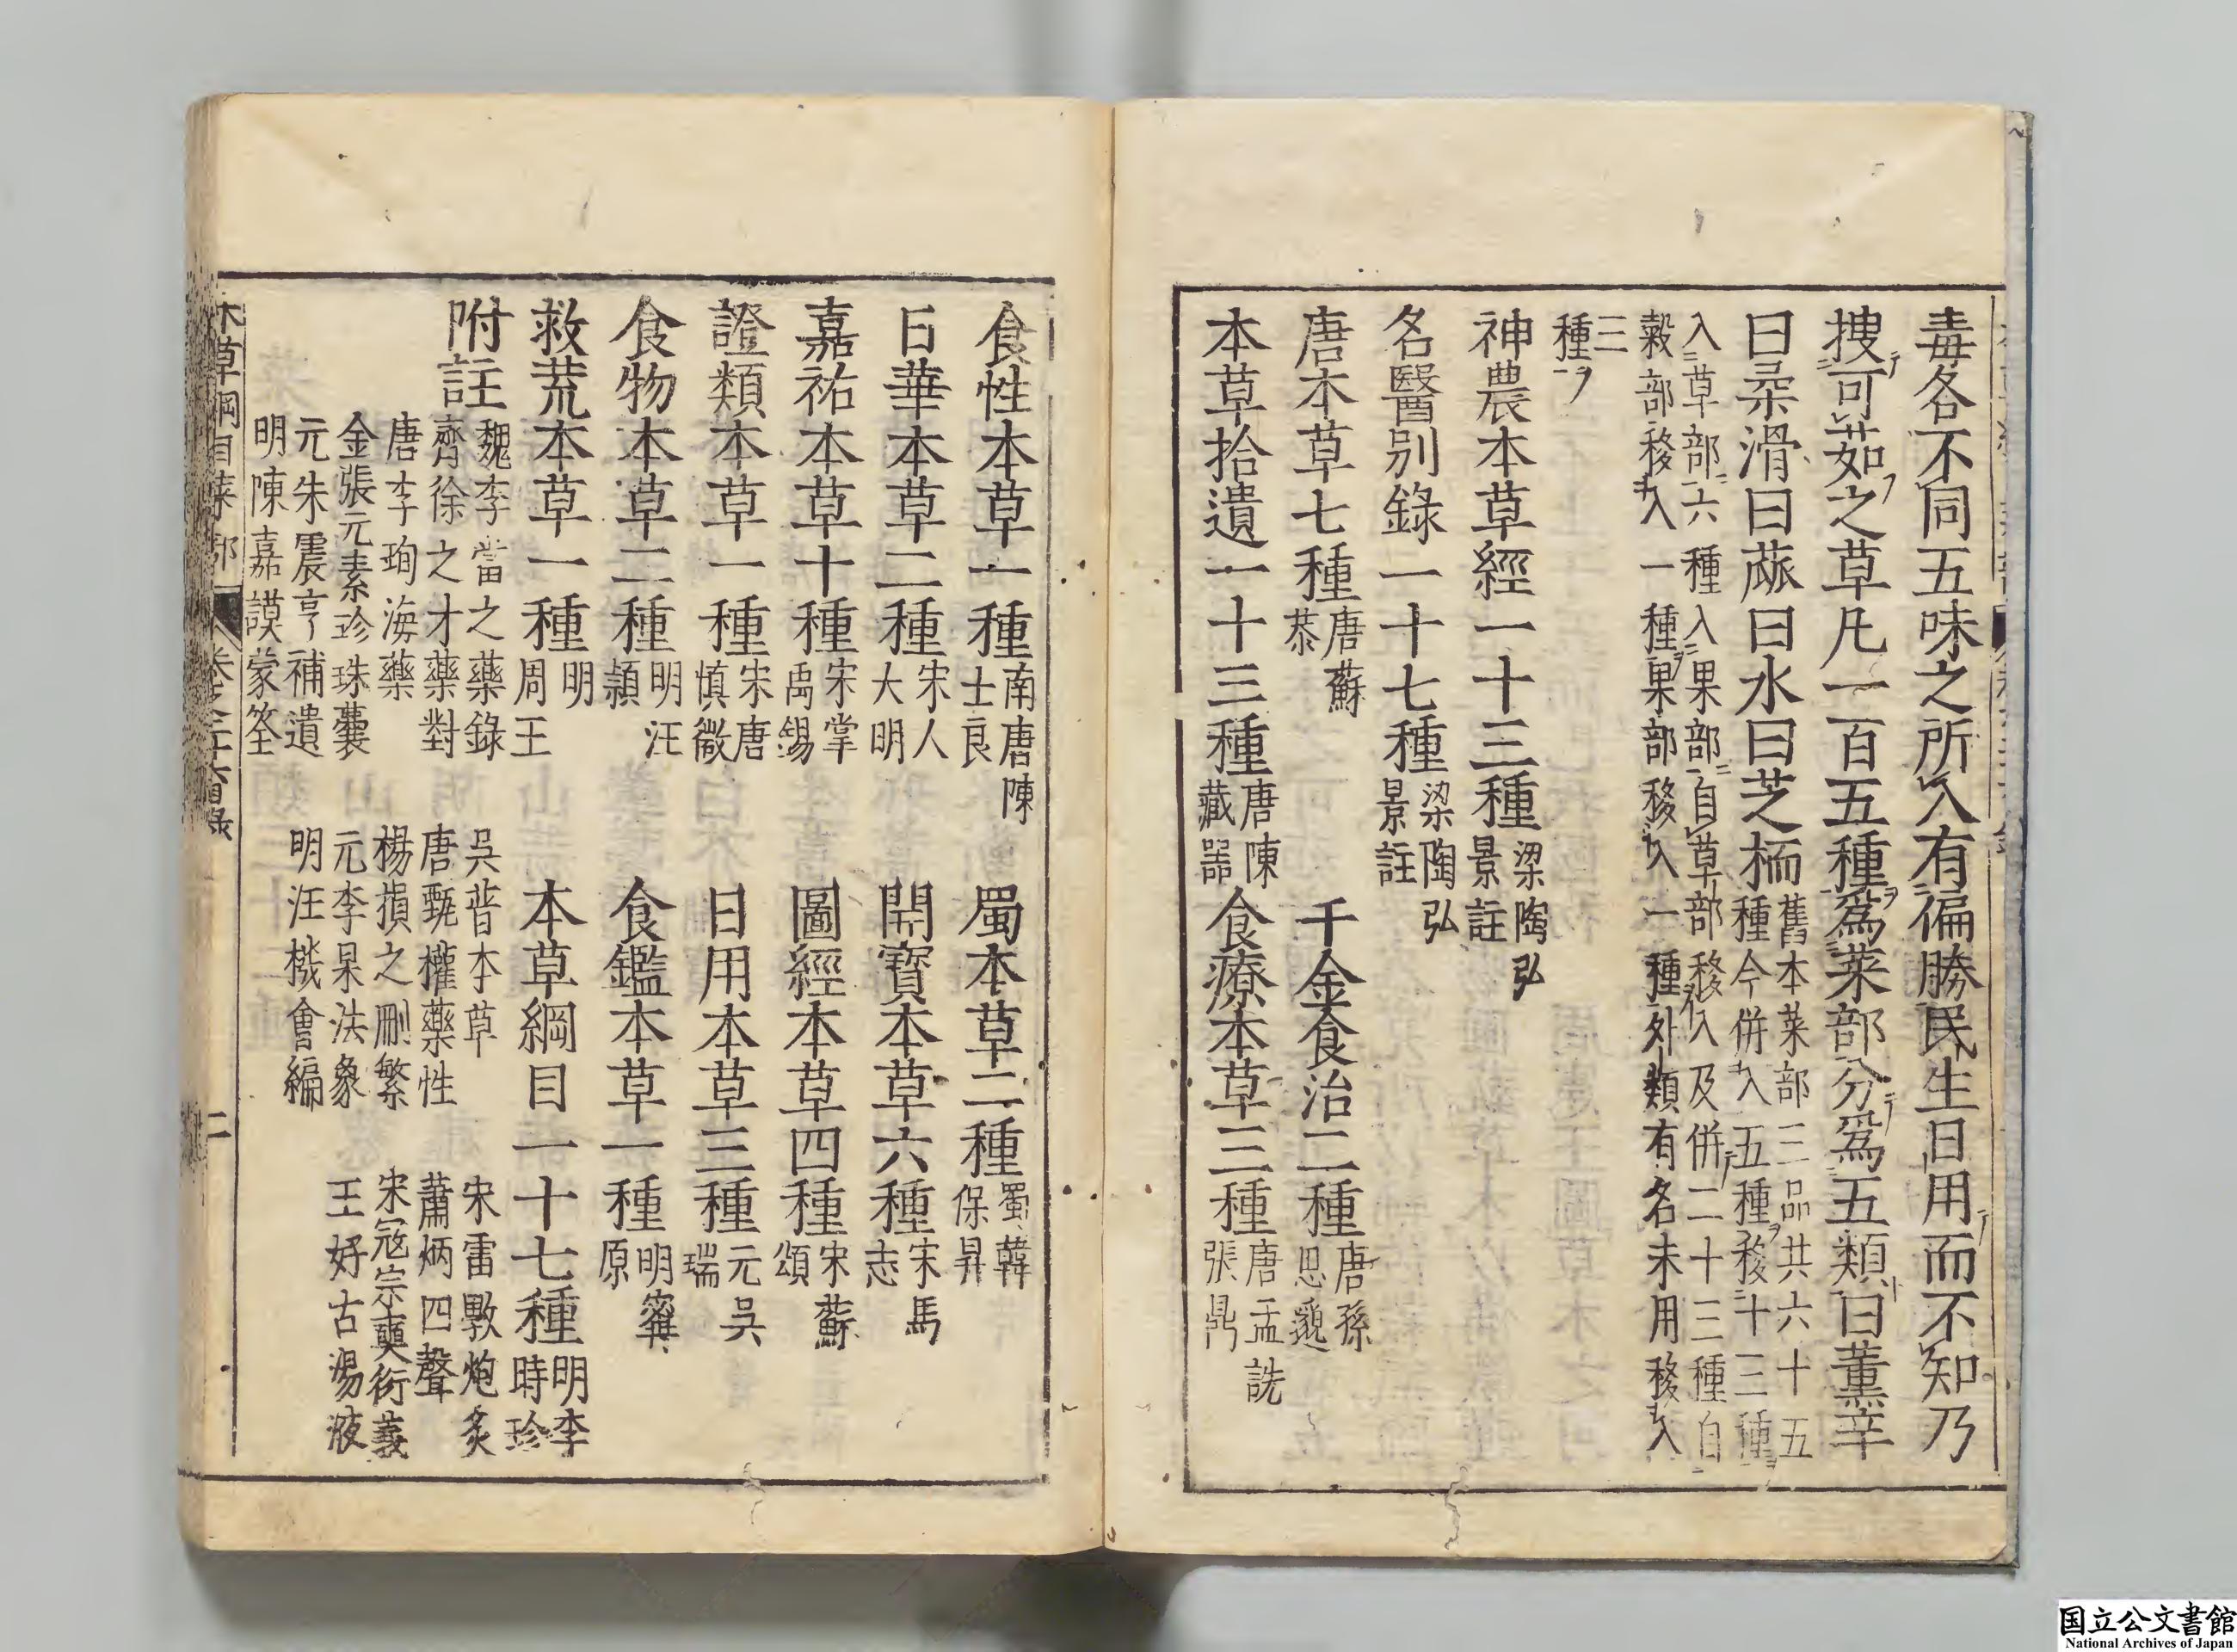 毒各不同五味之所入有偏勝民生日用而不知乃
搜可茹之草凡一百五種爲菜部分爲五類曰薫辛
曰柔滑曰蓏曰水曰芝栭舊本菜部三品共六十五
種今併入五種移十三種
入草部六種入果部自草部移入及併二十三種自
穀部移入一種果部移入一種外類有名未用移入
三
種
神農本草經一十三種梁陶弘
景註
名醫別錄一十七種梁陶弘
景註
唐本草七種唐蘇
恭
千金食治二種唐孫
思邈
本草拾遺一十三種唐陳
藏器
食療本草三種唐孟詵
張鼎
食性本草一種南唐陳
士良
蜀本草二種蜀韓
保昇
日華本草二種宋人
大明
開寶本草六種宋馬
志
嘉祐本草十種宋掌
禹錫
圖經本草四種宋蘇
頌
證類本草一種宋唐
慎微
日用本草三種元吳
瑞
食物本草二種明汪
頴
食鑑本草一種明寗
原
救荒本草一種明
周王
本草綱目一十七種明李
時珍
附註
魏李當之藥錄
吳普本草
宋雷斆炮炙
齊徐之才藥對
唐甄權藥性
蕭炳四聲
唐李珣海藥
楊損之刪繁
宋宼宗奭衍義
金張元素珍珠囊
元李杲法象
王好古湯液
元朱震亨補遺
明汪機會編
明陳嘉謨蒙筌
本草綱目菜部
目錄
二
国立公文書館
National Archives of Japan